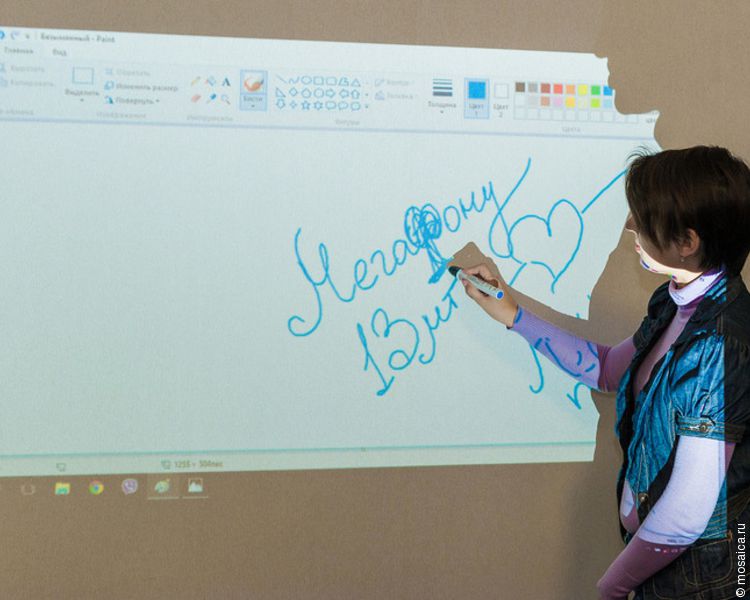 Безымянный - Paint
Главная Вид
Вырезать
Копировать
Выделить
Обрезать
Изменить размер
Повернуть
Изображение
Инструменты
Кисти
Контур
Заливка
Фигуры
Толщина
Цвет 1
Цвет 2
Цвета
Мегафону
13 лет
1255 × 504пкс
© mosaica.ru